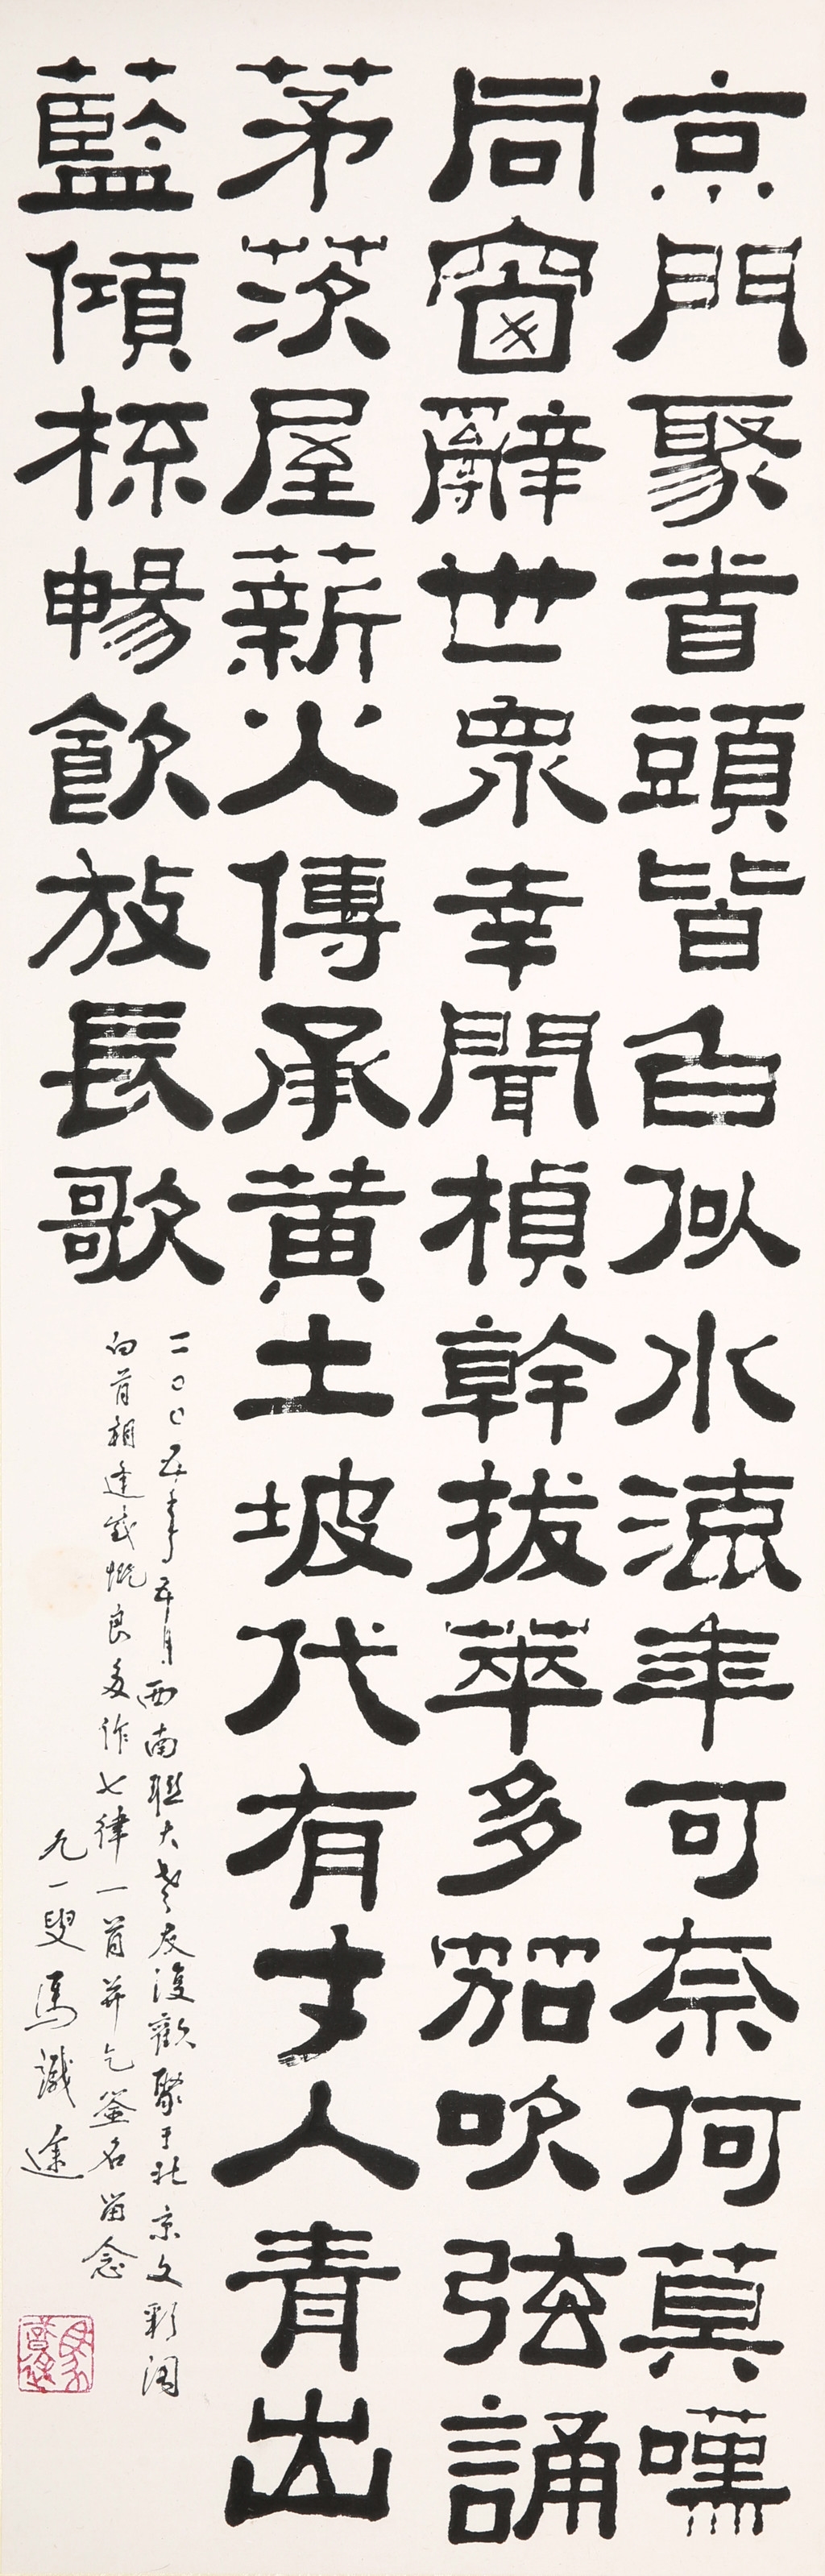 京門聚首頭皆白似水流年可奈何莫嘆
同窗辭世衆幸聞楨幹拔萃多笳吹弦誦
茅茨屋薪火傳承黃土坡代有才人青出
藍傾杯暢飲放長歌
二〇〇五年五月西南聯大老友復歡聚于北京文彩閣
白首相逢感慨良多作七律一首并乞簽名留念
九一叟馬識途
馬識途